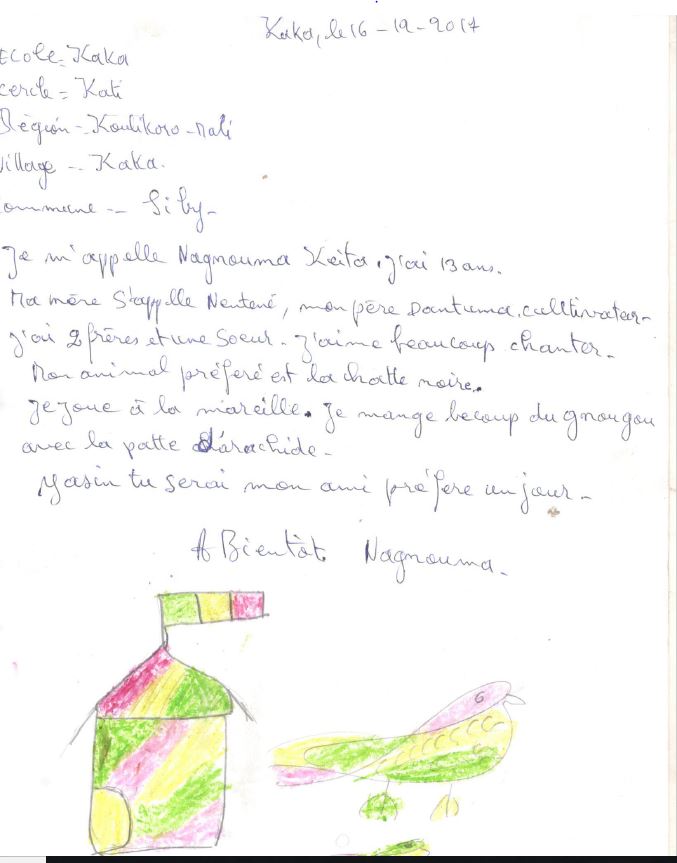 Kaka, le 16-12-2017
Ecole = Kaka
cercle = Kati
Région - Koulikoro - Mali
Village -- Kaka.
Commune -- Siby-
Je m'appelle Nagnouma Keita. j'ai 13 ans.
Ma mère s'appelle Nenténé, mon père Dantuma, cultivateur-
j'ai 2 frères et une soeur. j'aime beaucoup chanter.
Mon animal préferé est la chatte noire.
Je joue à la mareille. Je mange becoup du gnougou
avec la patte d'arachide-
Yasin tu serai mon ami préfere un jour-
A Bientôt Nagnouma.
6